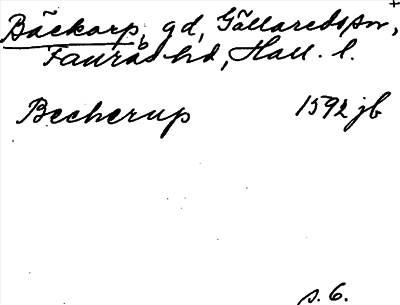 +
Bäckarp, gd, Gällaredssn,
Faurås hd, Hall. l.
Becherup 1592 jb
s. 6.